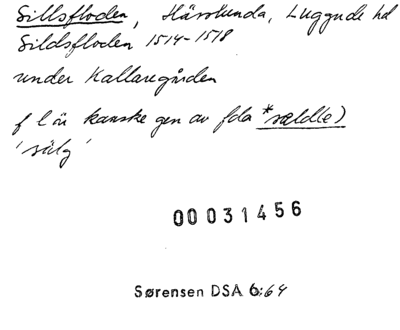 Sillsfloden, Härslunda, Luggude hd
Sildsfloden 1514-1518
under Kallaregården
f l är kanske gen av fda *sældl(e)
'sälg'
00 031456
Sørensen DSA 6:64